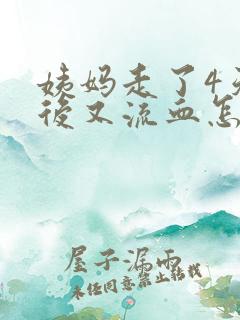 姨妈走了4天
後又流血怎
屋子漏雨
未经同意禁止转载